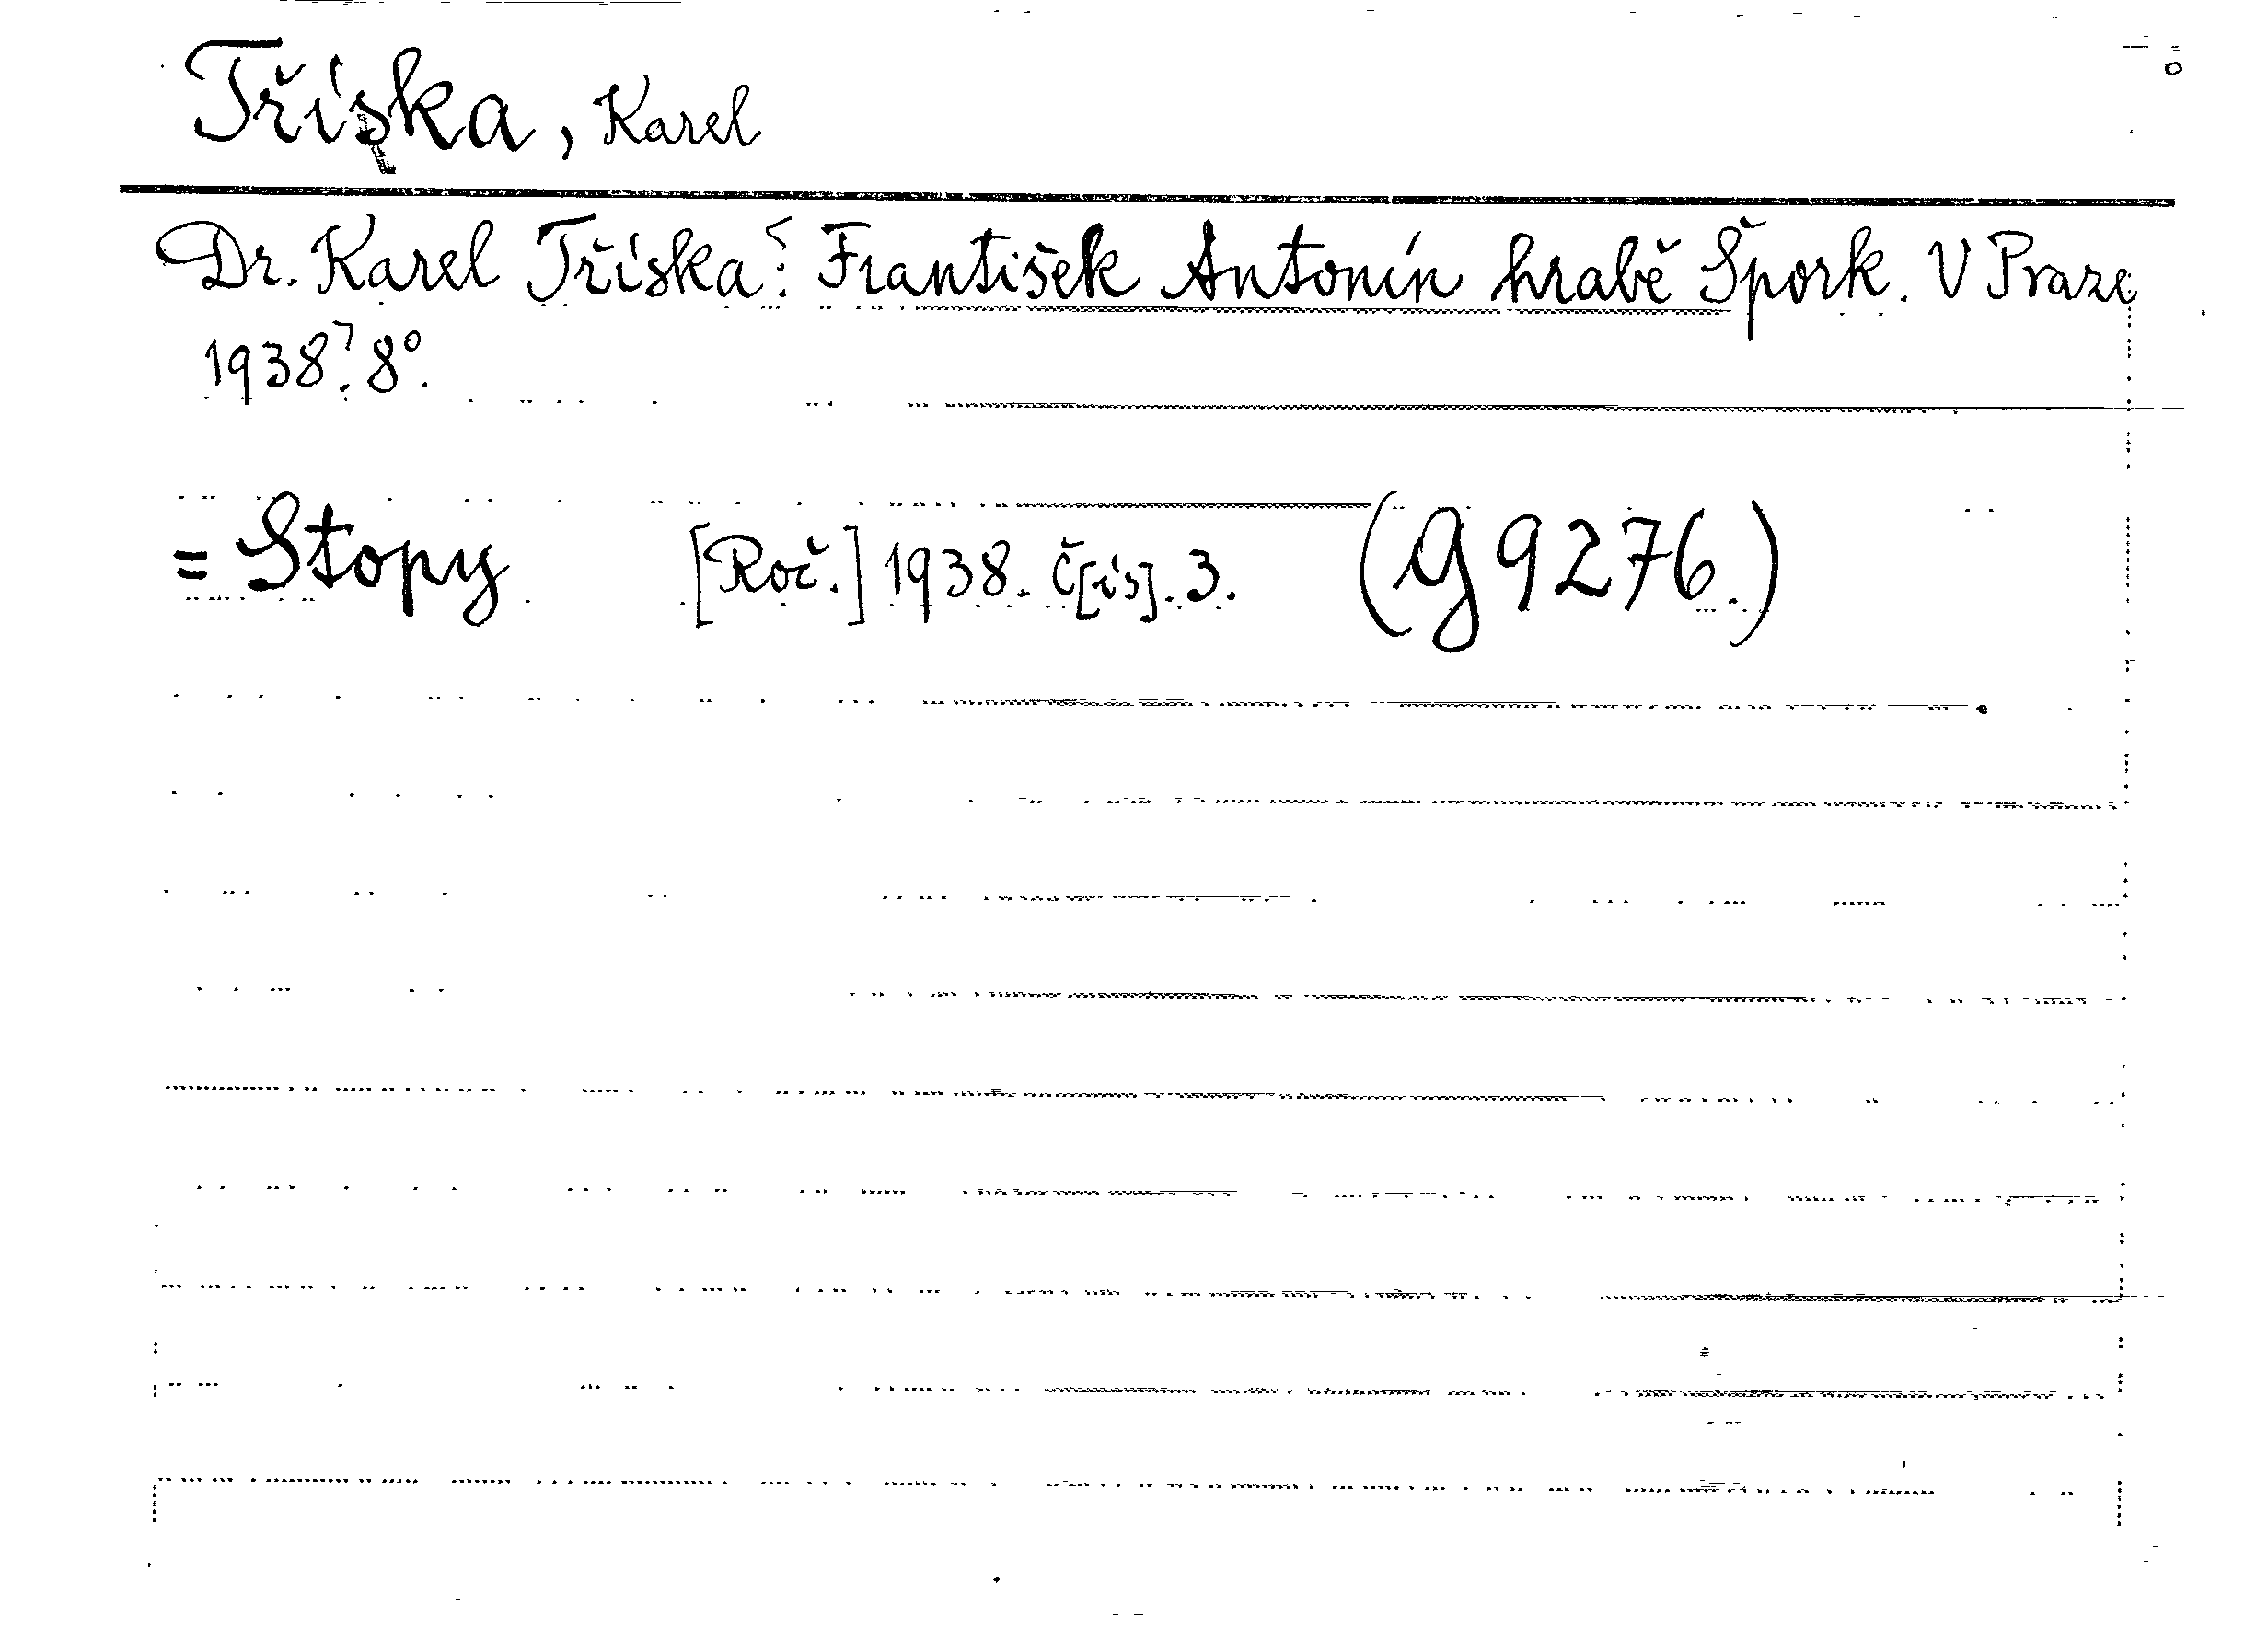 Tříska, Karel
Dr. Karel Tříska: František Antonín hrabě Špork. V Praze
1938. 8°.
= Stopy [Roč.] 1938. Č[ís]. 3. (G 9276.)